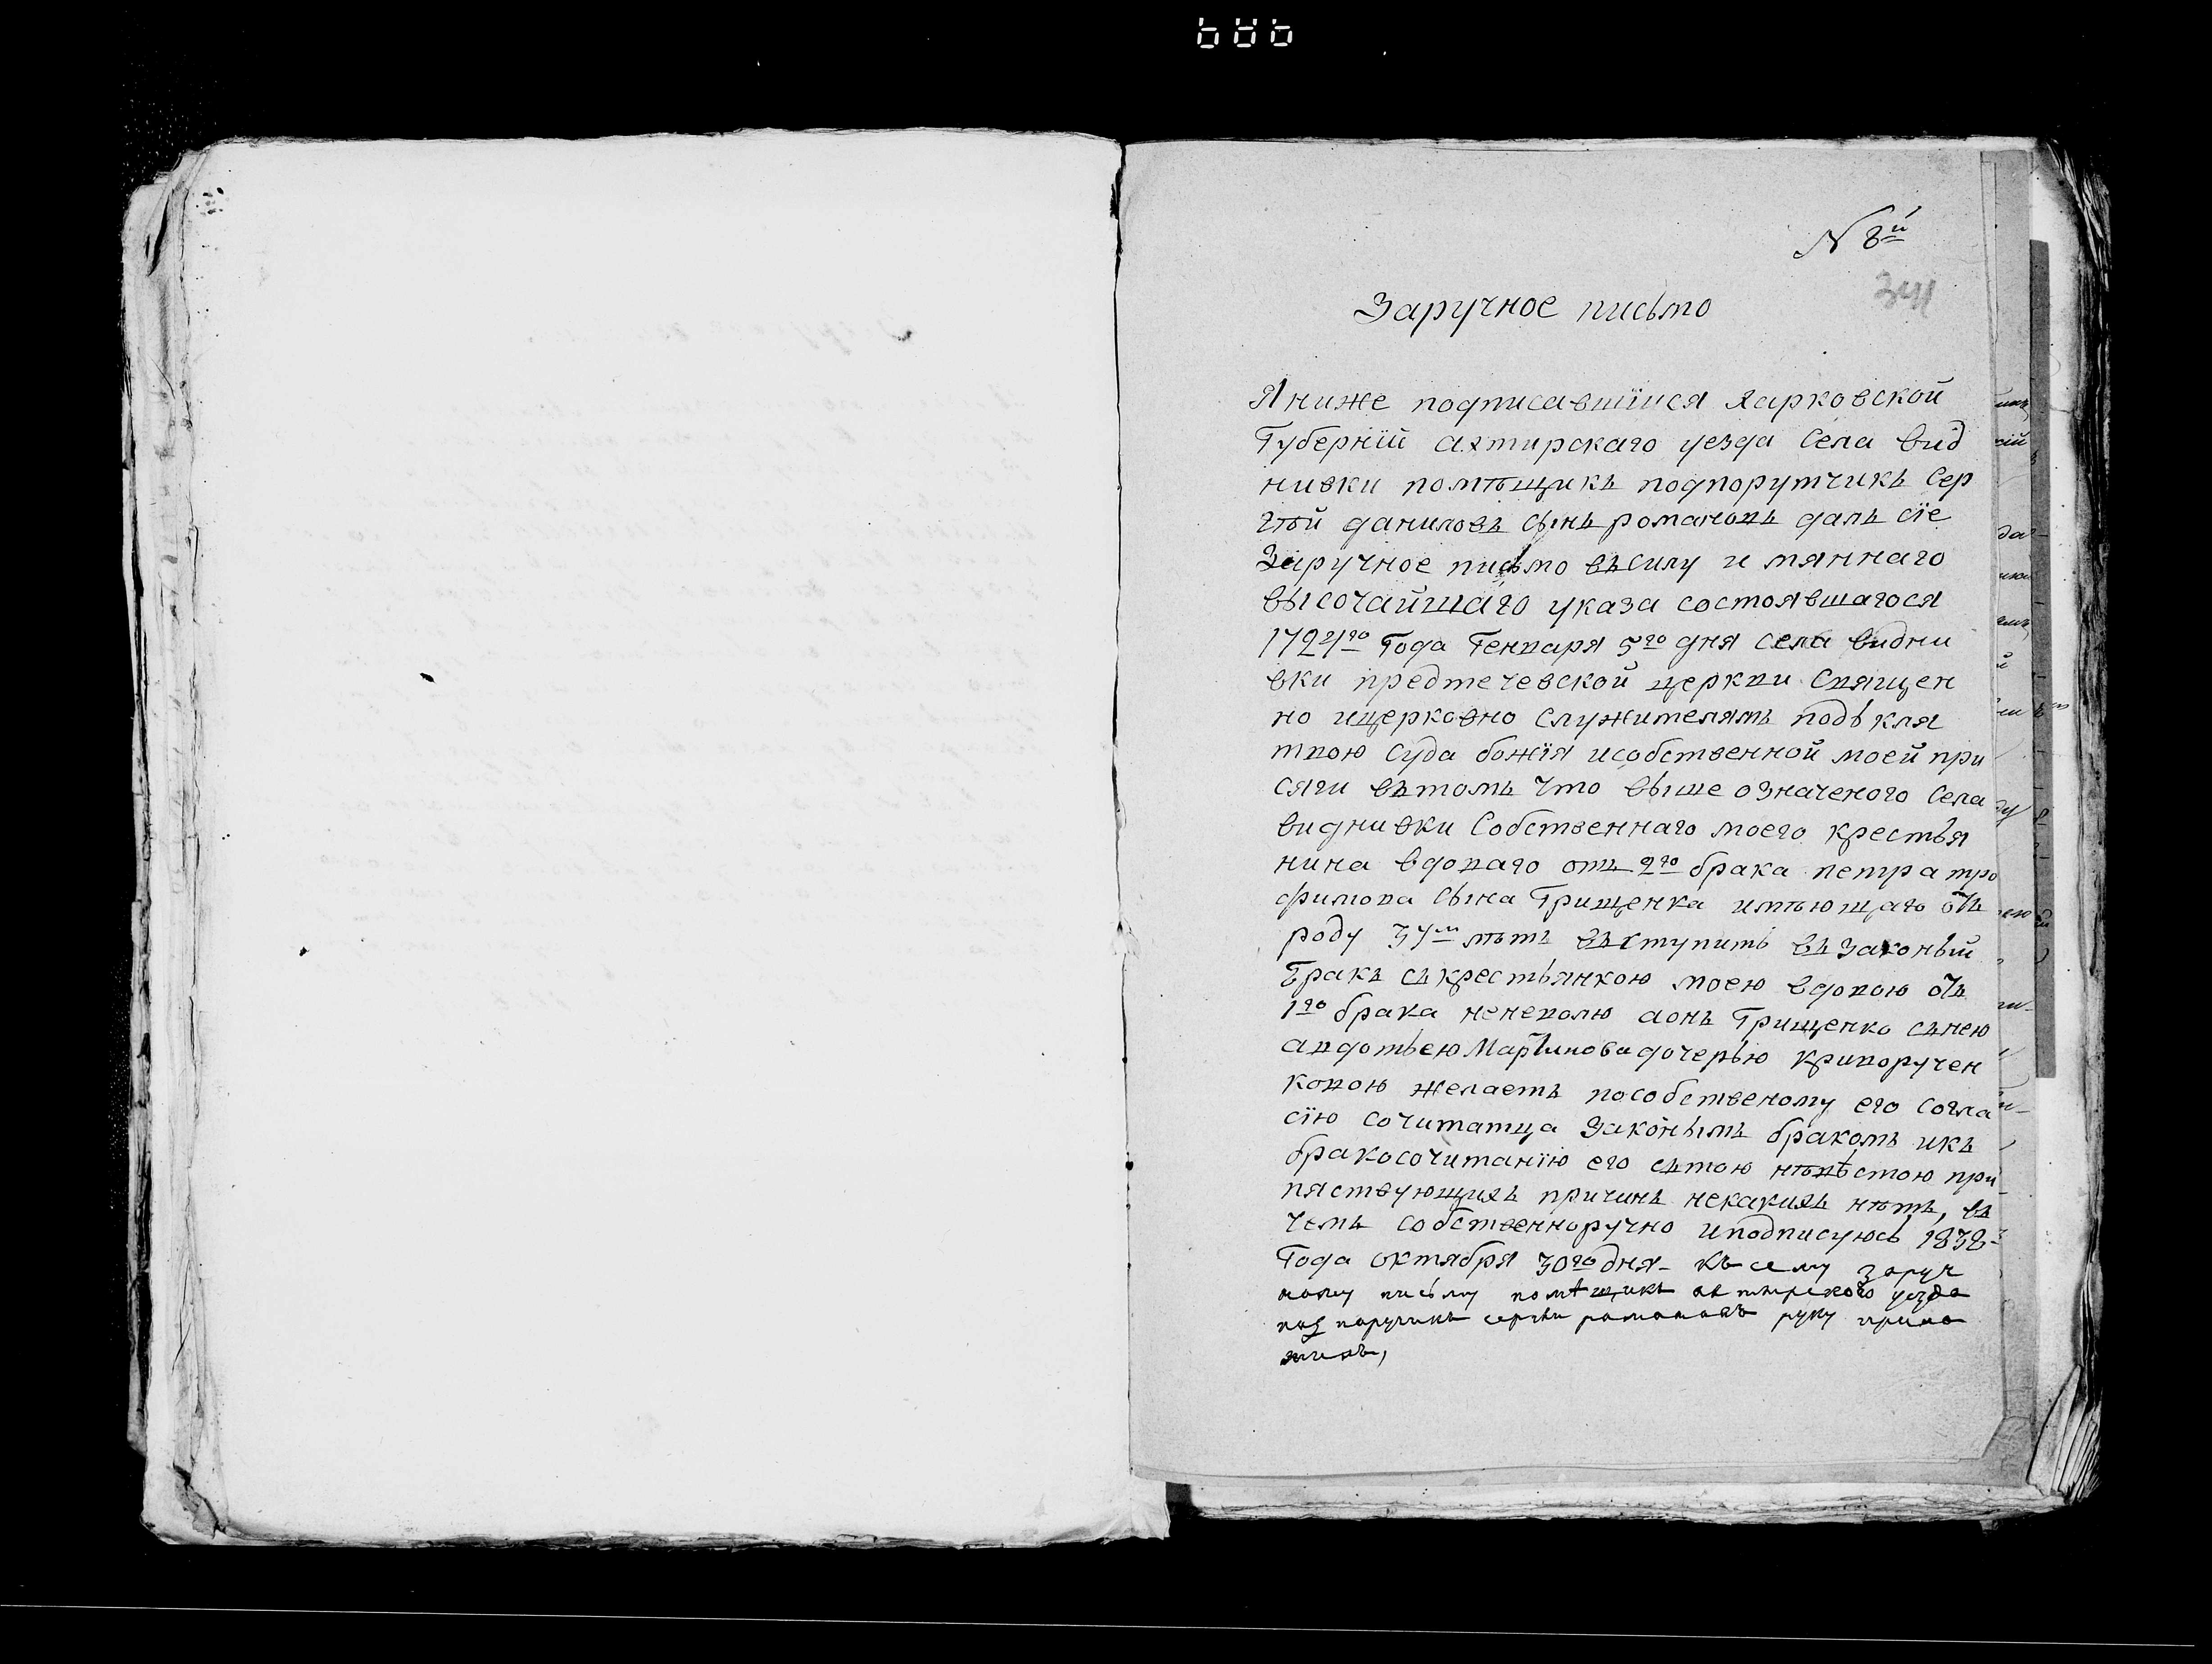 N 8й
341
Заручное письмо
Я ниже подписавшїися харковской
Губернїй ахтирскаго уезда Села вид
нивки помѣщикъ подпорутчикъ Сер
гѣй даниловъ сынъ романовъ далъ сїе
Заручное письмо въсилу имяннаго
высочайшаго указа состоявшагося
1724го Года Генваря 5го дня села видни
вки предтечевской церкви Священ
но ицерковно служителямъ подъ кля
твою Суда божїя исобственной моей при
сяги вътомъ что выше означеного Села
виднивки Собственнаго моего крестья
нина вдоваго отъ 2го брака петра тро
фимова Сына Грищенка имѣющаго отъ
роду 34 лѣтъ въступить въ Законый
бракъ съкрестьянкою моею вдовою отъ
1го брака неневолю аонъ Грищенко снею
авдотьею Мартинова дочерью криворучен
ковою желаетъ пособственому его Согла
сїю сочитатца Законымъ бракомъ икъ
бракосочитанїю его стою нѣвѣстою при
пяствующихъ причинъ некакихъ нѣтъ, въ
чемъ собственноручно иподписуюсь 1838
Года октября 30го дня - къ сему заруч
ному письму помѣщикъ ахтырского уезда
подпоручикъ сергѣи романовъ руку прило
жилъ,